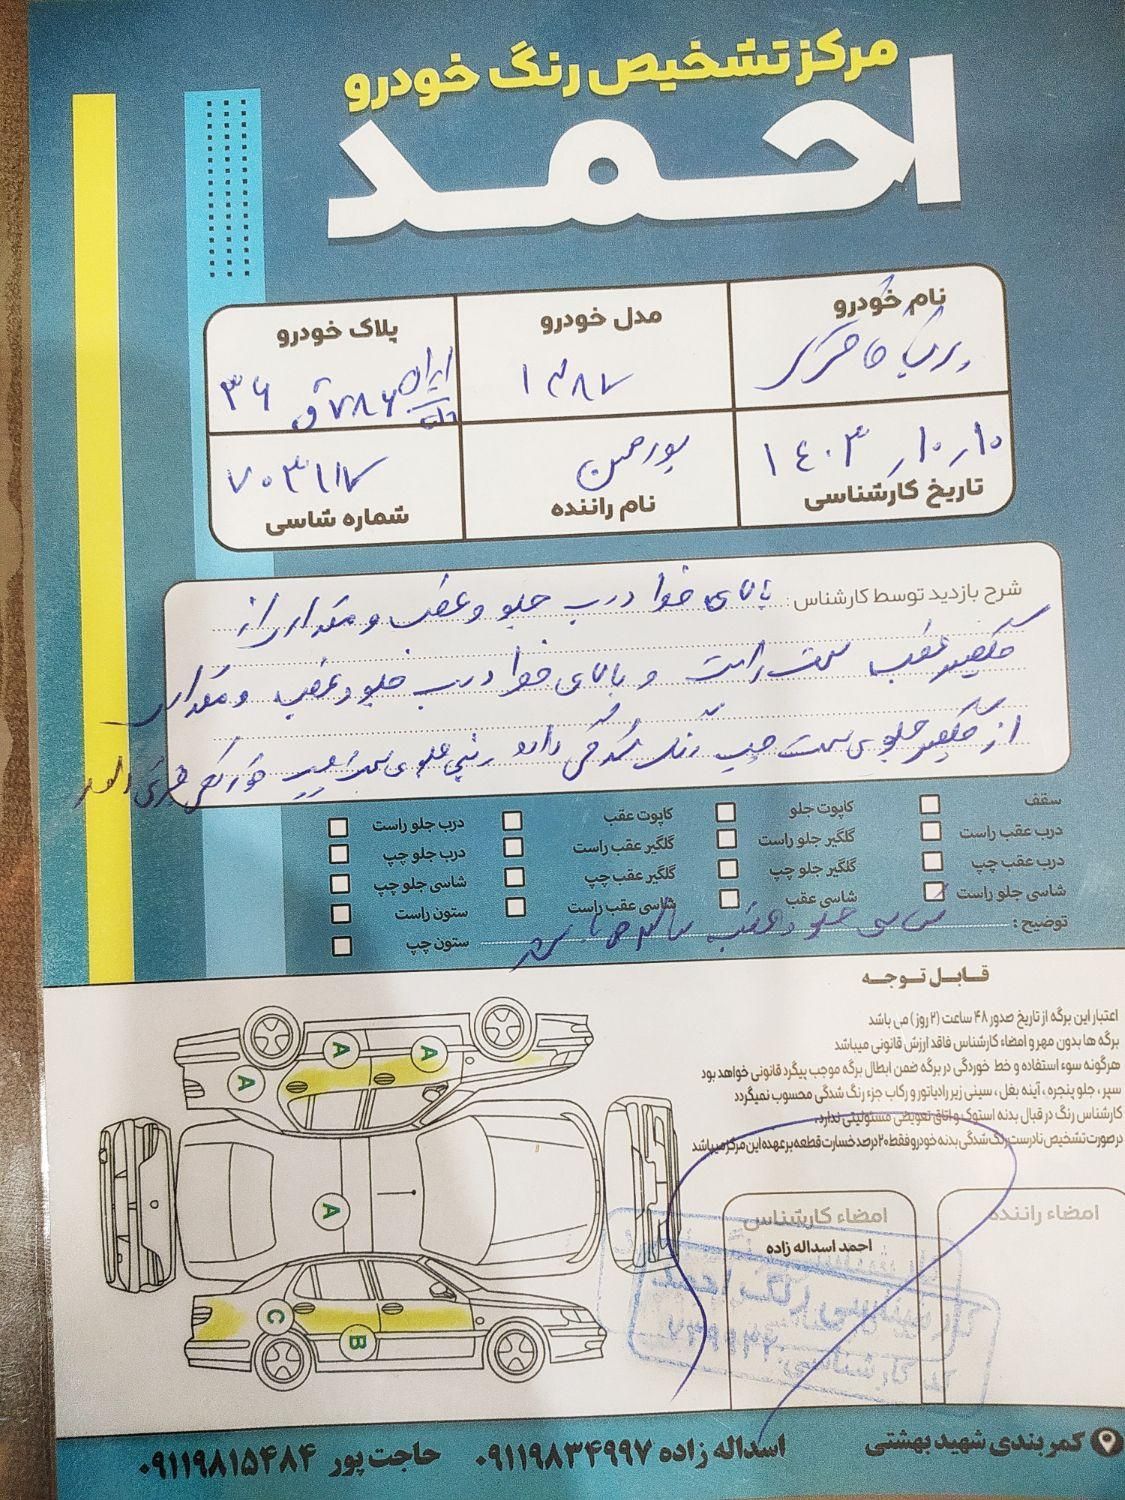 مرکز تشخیص رنگ خودرو
احمد
نام خودرو
مدل خودرو
پلاک خودرو
۱۳۸۷
ایران
۷۸۶ ق ۳۶
۱۴۰۳/۱۰/۱۰
۷۰۳۱۱۷
تاریخ کارشناسی
نام راننده
شماره شاسی
شرح بازدید توسط کارشناس: بالای درب جلو و عقب و مقداری از
گلگیر عقب سمت راست و بالای درب جلو و عقب و مقداری
از گلگیر جلوی سمت چپ رنگ شدگی دارد جلوی سمت
سقف
کاپوت جلو
کاپوت عقب
درب جلو راست
درب عقب راست
گلگیر جلو راست
گلگیر عقب راست
درب جلو چپ
درب عقب چپ
گلگیر جلو چپ
گلگیر عقب چپ
شاسی جلو چپ
شاسی جلو راست
شاسی عقب
شاسی عقب راست
ستون راست
ستون چپ
توضیح: شاسی جلو و عقب سالم
قابل توجه
اعتبار این برگه از تاریخ صدور ۴۸ ساعت (۲ روز) می باشد
برگه ها بدون مهر و امضاء کارشناس فاقد ارزش قانونی میباشد
هرگونه سوء استفاده و خط خوردگی در برگه ضمن ابطال برگه موجب پیگرد قانونی خواهد بود
سپر ، جلو پنجره ، آینه بغل ، سینی زیر رادیاتور و رکاب جزء رنگ شدگی محسوب نمیگردد
کارشناس رنگ در قبال بدنه استوک و اتاق تعویضی مسئولیتی ندارد.
در صورت تشخیص نادرست رنگ شدگی بدنه خودرو فقط ۲۰ درصد خسارت قطعه بر عهده این مرکز میباشد
A
A
A
A
C
B
امضاء راننده
امضاء کارشناس
احمد اسداله زاده
کمربندی شهید بهشتی
اسداله زاده ۰۹۱۱۹۸۳۴۹۹۷
حاجت پور ۰۹۱۱۹۸۱۵۴۸۴